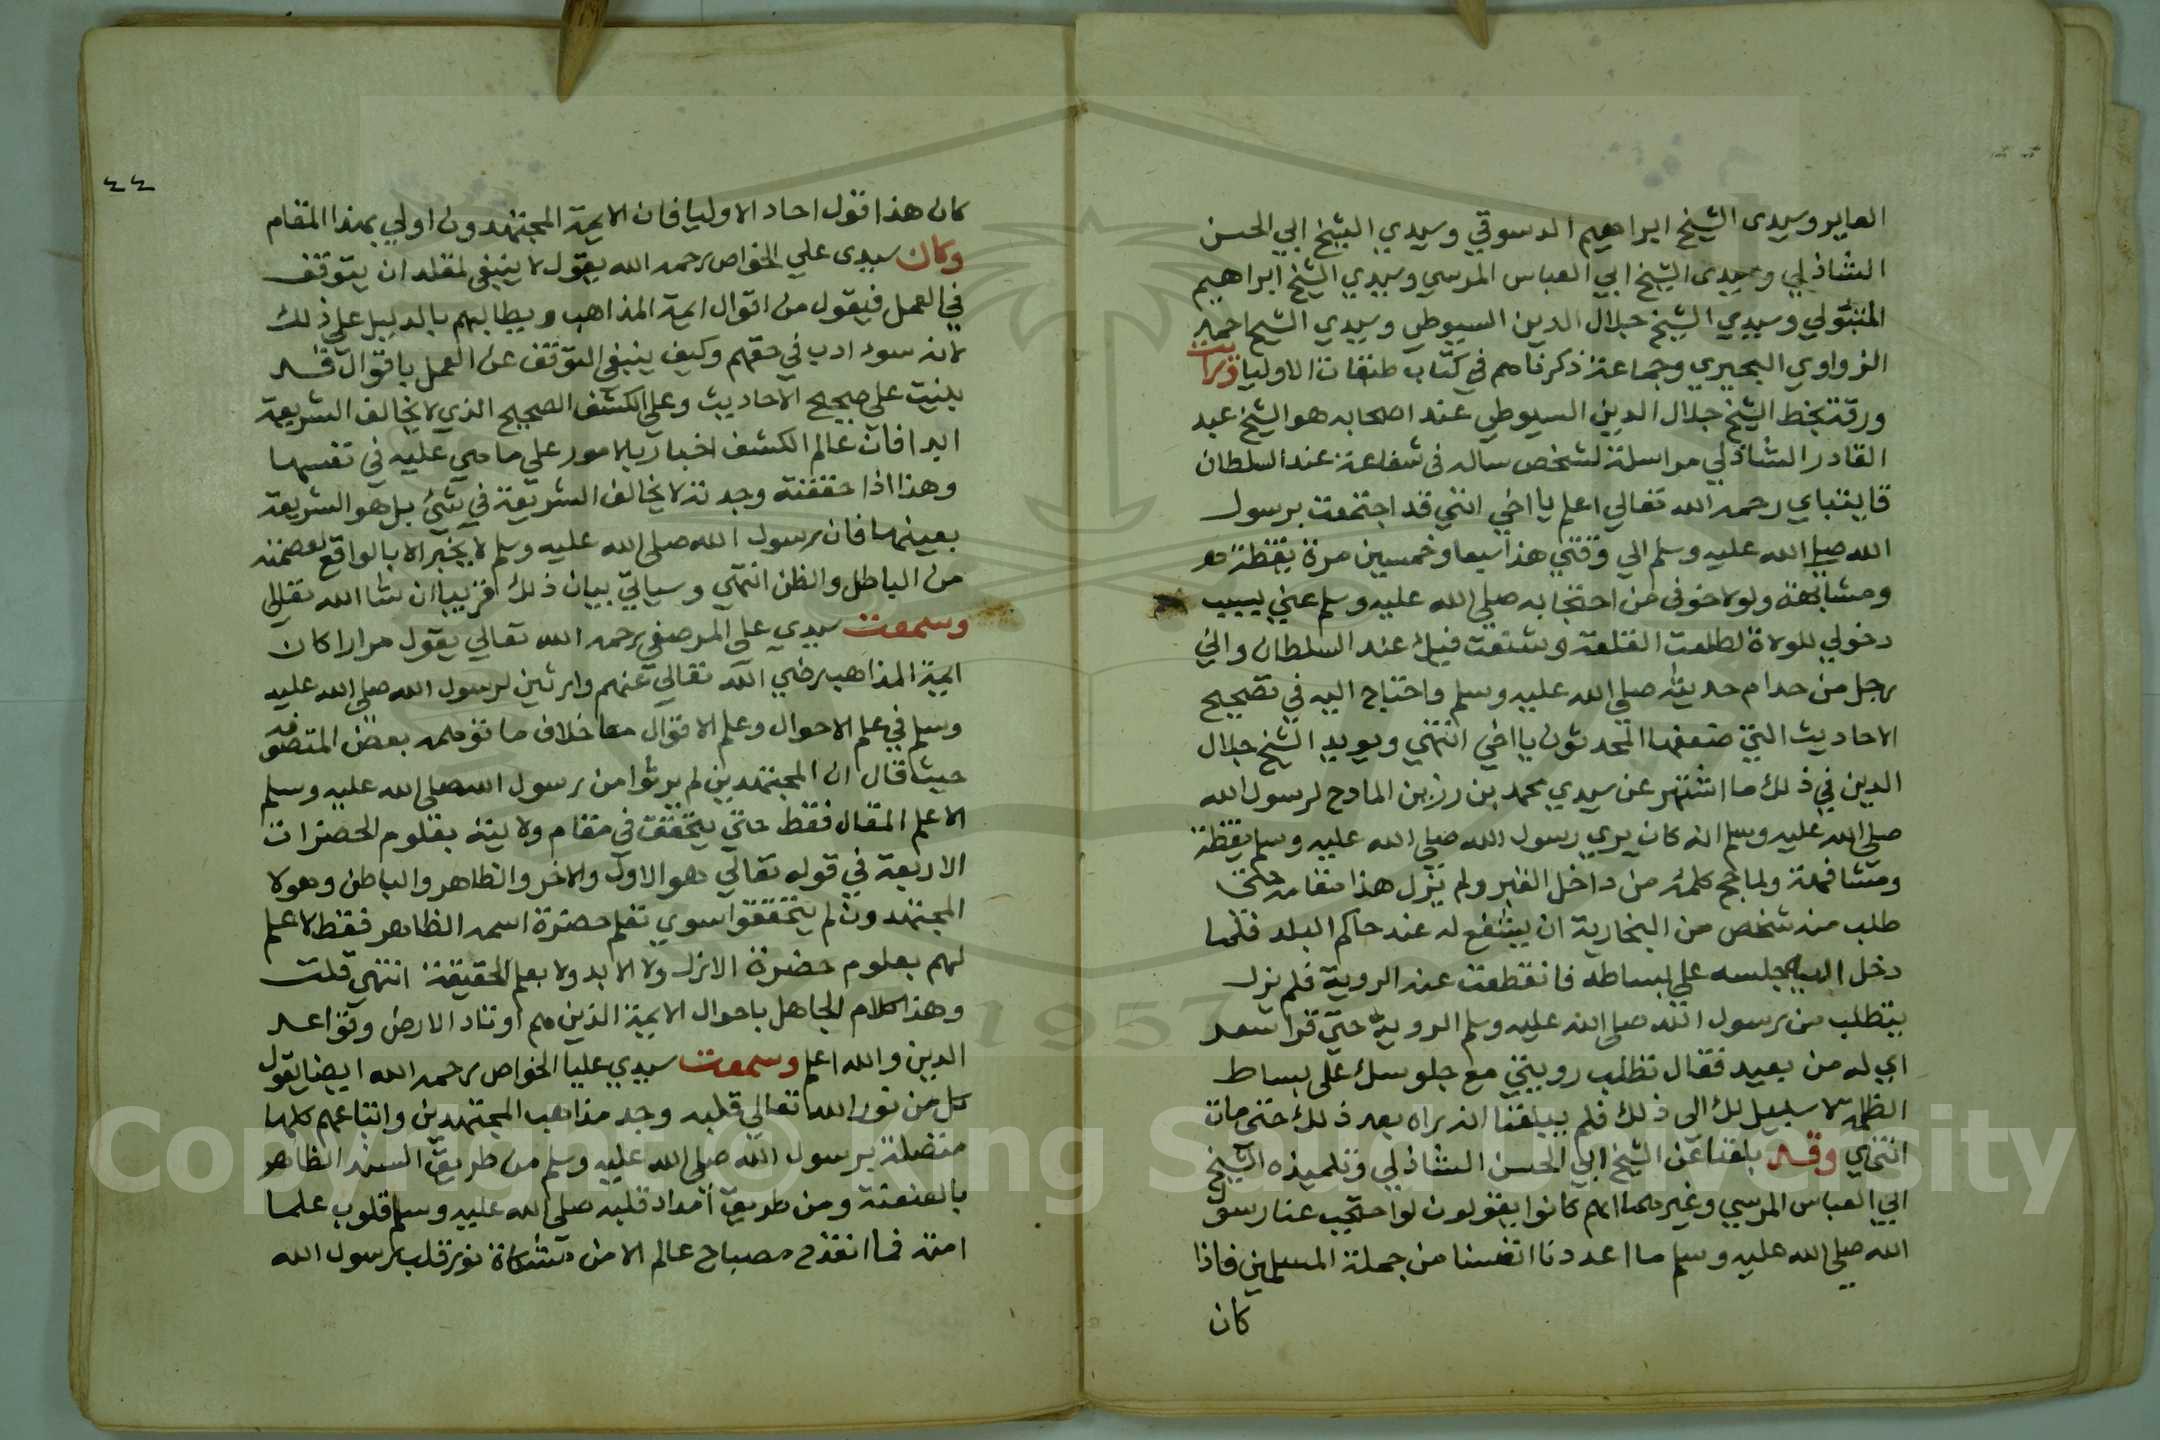 العابر وسيدى الشيخ ابراهيم الدسوقي وسيدي الشيخ ابي الحسن
الشاذلي وسيدى الشيخ ابي العباس المرسي وسيدي الشيخ ابراهيم
المتبولي وسيدي الشيخ جلال الدين السيوطي وسيدي الشيخ احمد
الزواوي البحيري وجماعة ذكرناهم في كتاب طبقات الاوليا ورايت
ورقة بخط الشيخ جلال الدين السيوطي عند اصحابه هو الشيخ عبد
القادر الشاذلي مراسلة لشخص ساله فى شفاعة عند السلطان
قايتباي رحمه الله تعالي اعلم يا اخي انني قد اجتمعت برسول
الله صلي الله عليه وسلم الي وقتي هذا سبعا وخمسين مرة يقظة
ومشافهة ولولا خوفى من احتجابه صلي الله عليه وسلم عني بسبب
دخولي للولاة لطلعت القلعة وشفعت فيك عند السلطان واني
رجل من خدام حديثه صلي الله عليه وسلم واحتاج اليه في تصحيح
الاحاديث التي ضعفها المحدثون يا اخي انتهي ويويد الشيخ جلال
الدين في ذلك ما اشتهر عن سيدي محمد بن رزين المادح لرسول الله
صلي الله عليه وسلم انه كان يري رسول الله صلي الله عليه وسلم يقظة
ومشافهة ولما حج كلمه من داخل القبر ولم يزل هذا مقامه حتى
طلب منه شخص من النحارية ان يشفع له عند حاكم البلد فلما
دخل اليه اجلسه علي بساطه فانقطعت عنه الروية فلم يزل
يتطلب من رسول الله صلي الله عليه وسلم الروية حتي قرا شعر
اي له من بعيد فقال تطلب رويتي مع جلوسك على بساط
الظلمة لا سبيل لك الى ذلك فلم يبلغنا انه براه بعد ذلك حتى مات
انتهي وقد بلغنا عن الشيخ ابي الحسن الشاذلي وتلميذه الشيخ
ابي العباس المرسي وغيرهما انهم كانوا يقولون لو احتجب عنا رسول
الله صلي الله عليه وسلم ما اعددنا انفسنا من جملة المسلمين فاذا
كان
٤٤
كان هذا قول احاد الاوليا فان الايمة المجتهدون اولي بهذا المقام
وكان سيدى علي الخواص رحمه الله يقول لا ينبغى لمقلد ان يتوقف
في العمل فيقول من اقوال ايمة المذاهب ويطالبهم بالدليل علي ذلك
لانه سوء ادب في حقهم وكيف ينبغى التوقف عن العمل باقوال قد
بنيت على صحيح الاحاديث وعلي الكشف الصحيح الذي لا يخالف الشريعة
ابدا فان عالم الكشف اخبار بالامور علي ما هي عليه في نفسها
وهذا اذا حققته وجدته لا يخالف الشريعة في شئ بل هو الشريعة
بعينها فان رسول الله صلى الله عليه وسلم لا يخبر الا بالواقع لعصمته
من الباطل والظن انتهي وسياتي بيان ذلك قريبا ان شا الله تعالى
وسمعت سيدي علي المرصفي رحمه الله تعالي يقول مرارا كان
ايمة المذاهب رضي الله تعالي عنهم وارثين لرسول الله صلى الله عليه
وسلم في علم الاحوال وعلم الاقوال معا خلاف ما توهمه بعض المتصوفه
حيث قال ان المجتهدين لم يرثوا من رسول الله صلى الله عليه وسلم
الا علم المقال فقط حتي يتحقق في مقام ولايته بعلوم الحضرات
الاربعة في قوله تعالي هو الاول والاخر والظاهر والباطن وهولا
المجتهدون لم يتحققوا سوي تعلم حضرة اسمه الظاهر فقط لا علم
لهم بعلوم حضرة الازل ولا الابد ولا بعلم الحقيقة انتهي قلت
وهذا كلام الجاهل باحوال الايمة الذين هم اوتاد الارض وقواعد
الدين والله اعلم وسمعت سيدي عليا الخواص رحمه الله ايضا يقول
كل من نور الله تعالي قلبه وجد مذاهب المجتهدين واتباعهم كلها
متصلة برسول الله صلى الله عليه وسلم من طريق السند الظاهر
بالعنعنة ومن طريق امداد قلبه صلى الله عليه وسلم لقلوب علما
امته فما انقدح مصباح عالم الا من مشكاة نور قلب رسول الله